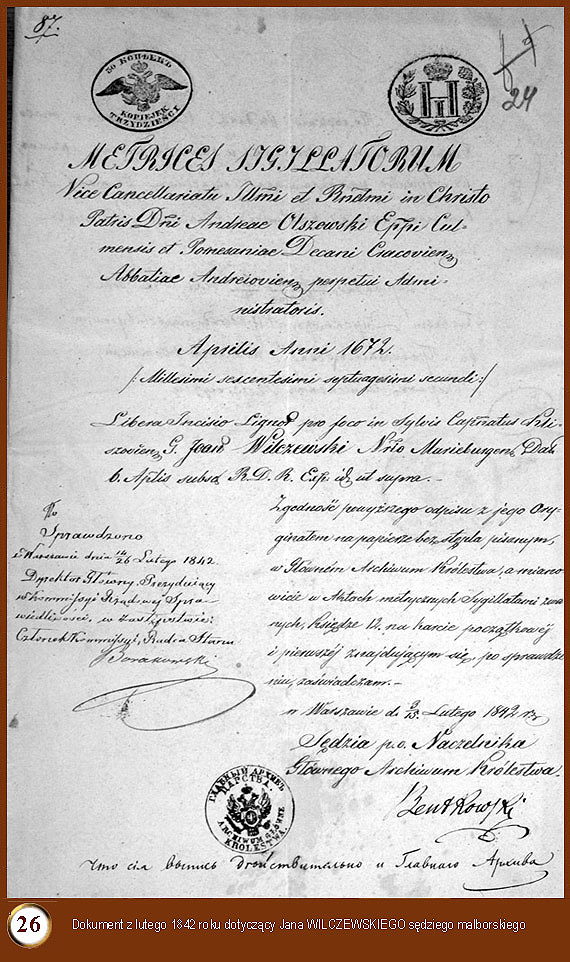 87.
30 КОПѢЕКЪ
KOPIEJEK TRZYDZIEŚCI
24
METRICES SIGILLATORUM
Vice Cancellariatu Illmi et Rndmi in Christo
Patris Dni Andreae Olszewski Eppi Cul-
mensis et Pomesaniae Decani Cracovien
Abbatiae Andreiovien perpetui Admi-
nistratoris.
Aprilis Anni 1672.
/: Millesimi sexcentesimi septuagesimi secundi :/
Libera Incisio Lignor pro foco in Sylvis Captnatus
G. Joan Wilczewski Marieburgen
6. Aplis subsc R. D. R. Exp. ut supra. —
Sprawdzono
w Warszawie dnia 14/26 Lutego 1842.
Dyrektor Główny Prezydujący
w Kommissyi Rządowej Spra-
wiedliwości, w zastępstwie:
Członek Kommissyi, Radca Stanu
Zgodność powyższego odpisu z jego Ory-
ginałem na papierze bez stępla pisanym,
w Główném Archiwum Królestwa, a miano
wicie w Aktach metrycznych Sygillatami zwa
nych, księdze 12. na karcie początkowéj
i pierwszéj znajdującym się, po sprawdze
niu, zaświadczam. —
w Warszawie d. 3/15 Lutego 1842 r.
Sędzia p.o. Naczelnika
Głównego Archiwum Królestwa.
Bentkowski
ГЛАВНЫЙ АРХИВЪ ЦАРСТВА
ARCHIWUM GŁÓWNE KRÓLESTWA.
Что сія выпись дѣйствительно и Главнаго Архива
26 Dokument z lutego 1842 roku dotyczący Jana WILCZEWSKIEGO sędziego malborskiego